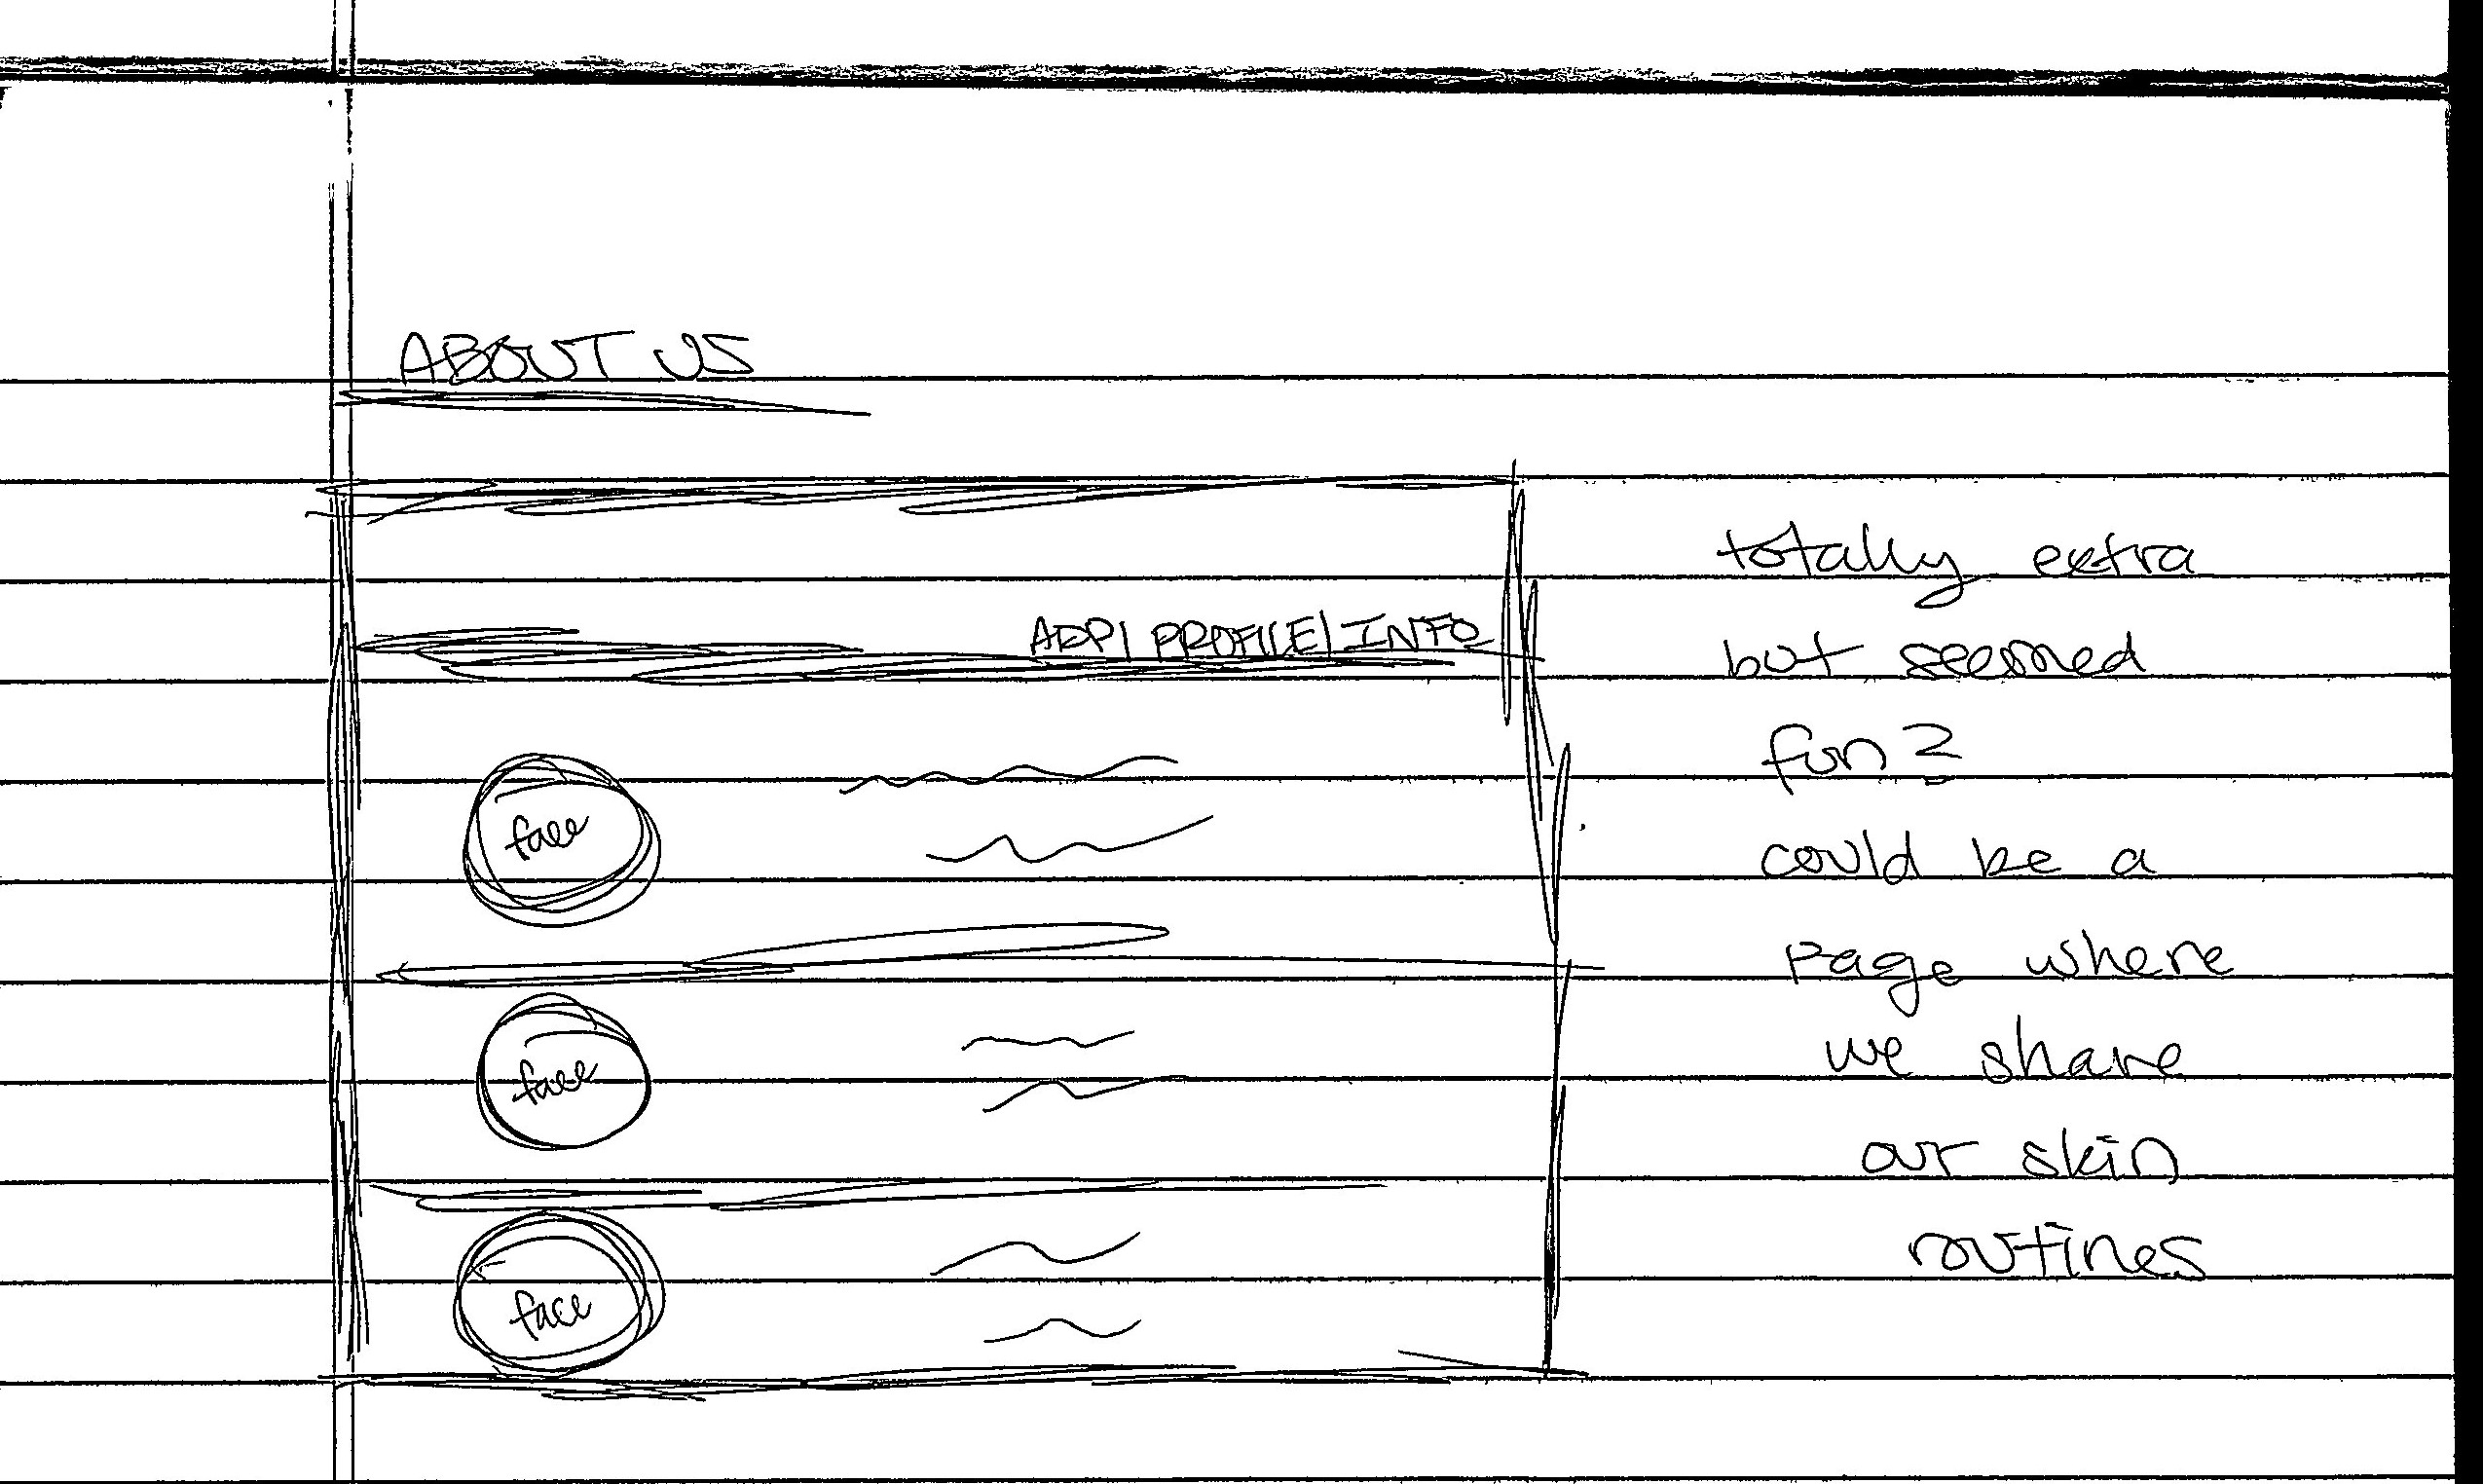 ABOUT US
ADD | PROFILE | INFO
face
face
face
totally extra
but seemed
fun?
could be a
page where
we share
our skin
routines